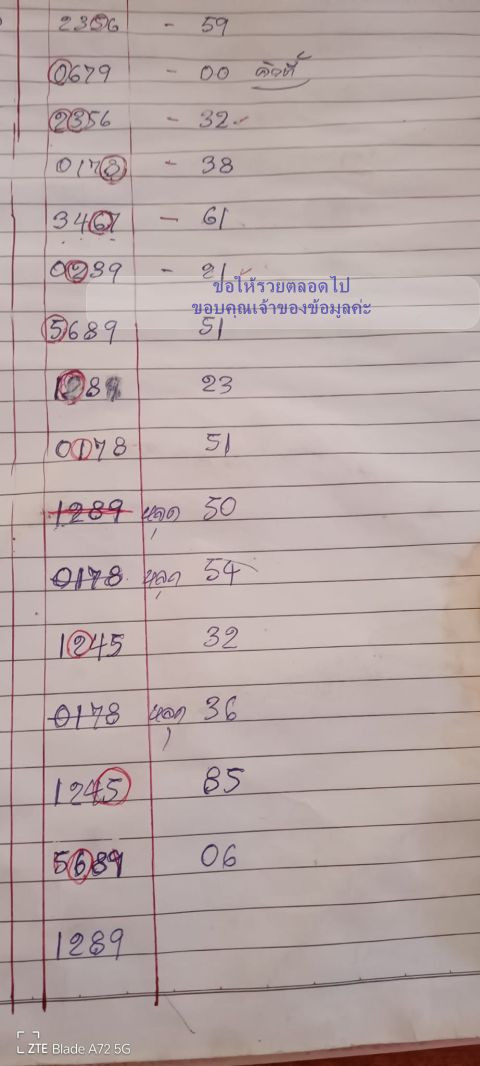 2356 - 59
0679 - 00
2356 - 32
0178 - 38
3467 - 61
0239 - 21
ขอให้รวยตลอดไป
ขอบคุณเจ้าของข้อมูลค่ะ
5689 51
1289 23
0178 51
1289 หลุด 50
0178 หลุด 54
1245 32
0178 หลุด 36
1245 85
5689 06
1289
ZTE Blade A72 5G